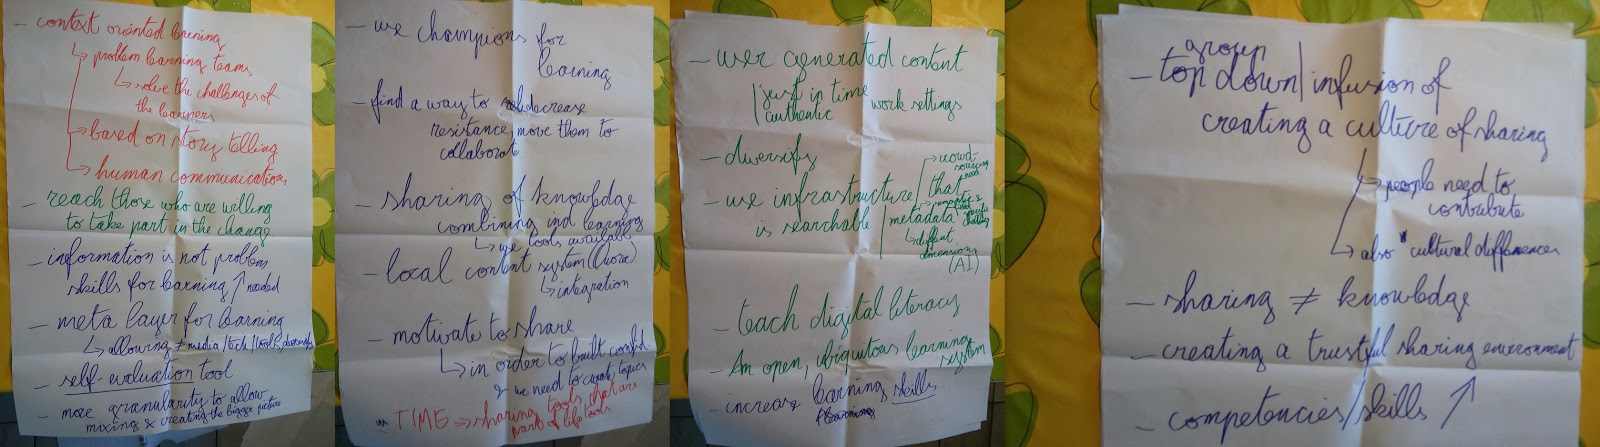 - context oriented learning
↳ problem learning teams
↳ solve the challenges of
the learners
→ based on story telling
↳ human communication
- reach those who are willing
to take part in the change
- information is not problem
skills for learning ↑ needed
- meta layer for learning
↳ allowing ≠ media/tech/tools,
- self-evaluation tool
- more granularity to allow
mixing & creating the bigger picture
- use champions for
learning
- find a way to decrease
resistance, move them to
collaborate
- sharing of knowledge
combining ind learning
↳ use tools available
- local content system (Quora)
↳ integration
- motivate to share
↳ in order to built confid.
& we need to curate topics
TIME => sharing tools that are
part of life tools
- user generated content
just in time
authentic work settings
- diversify
- use infrastructure that
is searchable
→ crowd-
sourcing
need
metadata
specific
↳ different
dimensions
(AI)
- teach digital literacy
- An open, ubiquitous learning
system
- increase learning skills
learning
group
- top down/infusion of
creating a culture of sharing
↳ people need to
contribute
↳ also cultural differences
- sharing ≠ knowledge
- creating a trustful sharing environment
- competencies/skills ↑